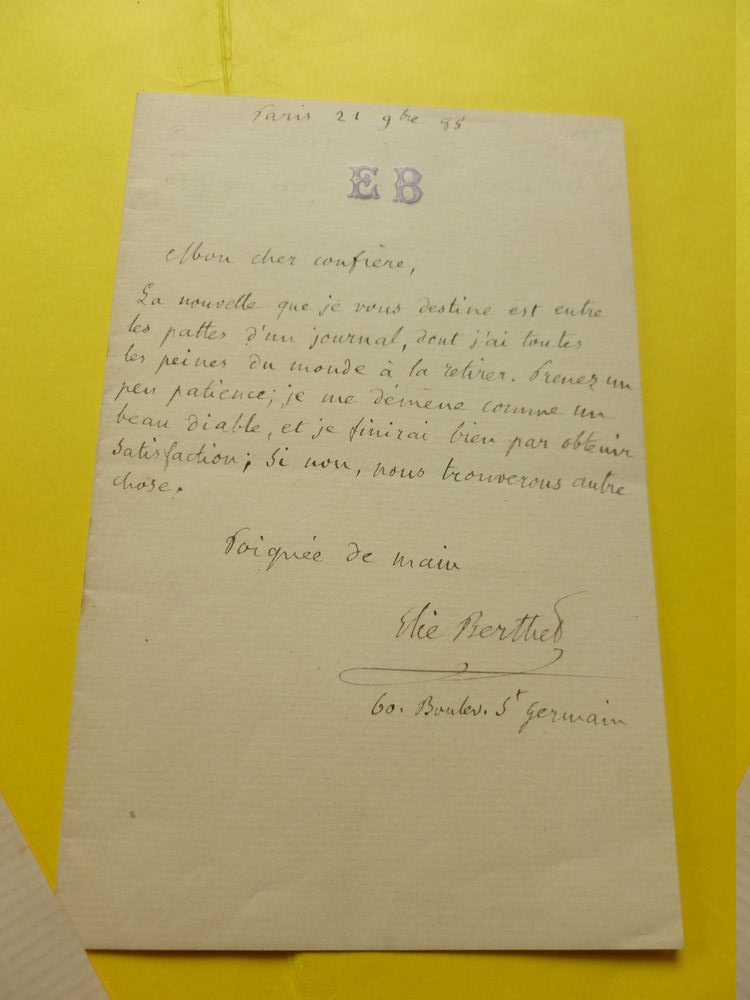 Paris 21 9bre 85
E B
Mon cher confrère,
La nouvelle que je vous destine est entre
les pattes d'un journal, dont j'ai toutes
les peines du monde à la retirer. Prenez un
peu patience; je me démène comme un
beau diable, et je finirai bien par obtenir
satisfaction; si non, nous trouverons autre
chose.
Poignée de main
Elie Berthet
60. Boulev. St Germain